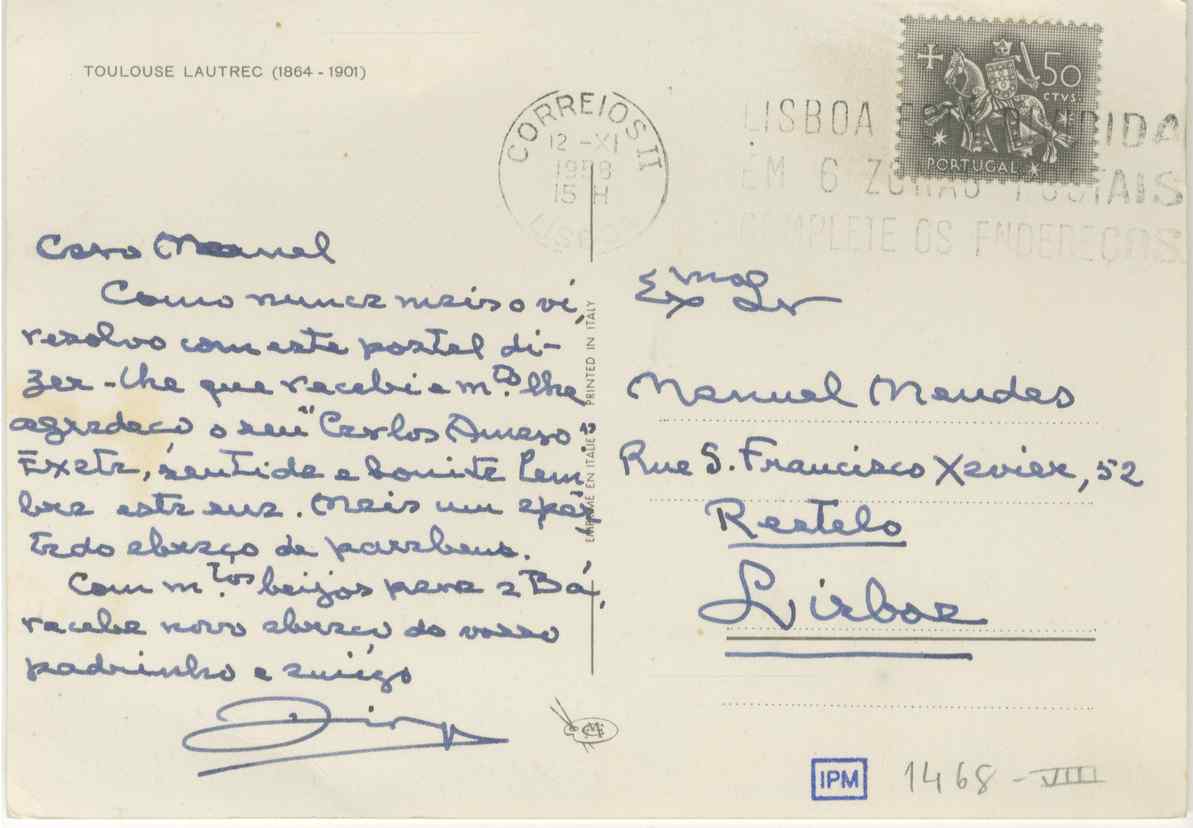 TOULOUSE LAUTREC (1864 - 1901)
CORREIOS II
12 -XI
1958
15 H
LISBOA
LISBOA EST DIVIDIDA
EM 6 ZONAS POSTAIS
COMPLETE OS ENDEREÇOS
50
CTVS.
PORTUGAL
Caro Manuel
Como nunca mais o vi,
resolvo com este postal di-
zer-lhe que recebi e m.to lhe
agradeço o seu "Carlos Amaro"
Exata, sentida e bonita lem
bra esta sua. Mais um aper
tado abraço de parabens.
Com m.tos beijos para a Bá,
recebe novo abraço do vosso
padrinho e amigo
IMPRIMÉ EN ITALIE - PRINTED IN ITALY
Exmo Sr
Manuel Mendes
Rue S. Francisco Xavier, 52
Restelo
Lisboa
IPM
1468-VIII